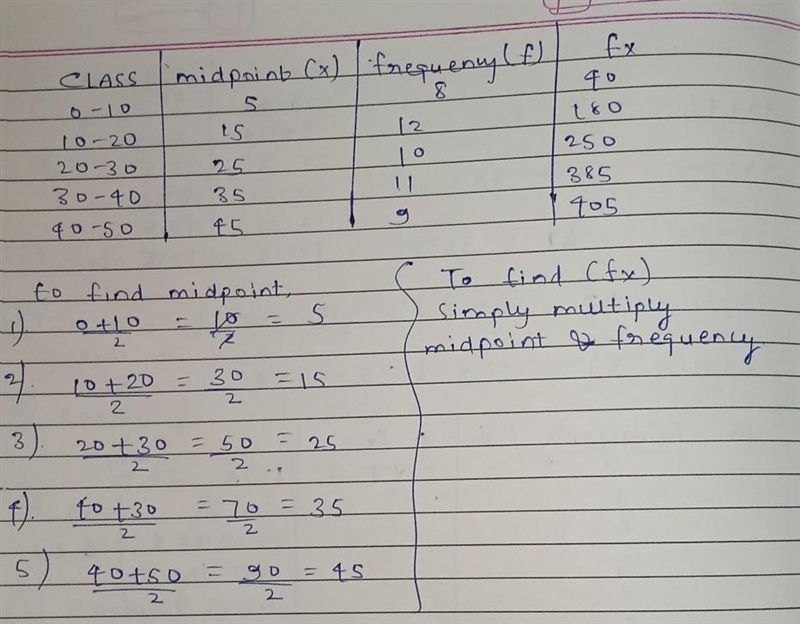 CLASS midpoint (x) frequency (f) fx
0-10 5 8 40
10-20 15 12 180
20-30 25 10 250
30-40 35 11 385
40-50 45 9 405
to find midpoint,
1). 0+10/2 = 10/2 = 5
2). 10+20/2 = 30/2 = 15
3). 20+30/2 = 50/2 = 25
4). 40+30/2 = 70/2 = 35
5) 40+50/2 = 90/2 = 45
To find (fx)
simply multiply
midpoint & frequency